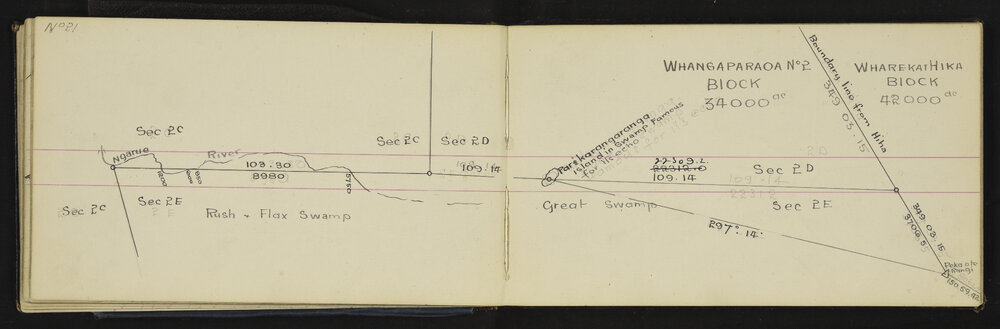 No 21
Sec 2C
Ngarue River
103.30
8980
Sec 2C
Sec 2D
109.14
Sec 2C
Sec 2E
Rush + Flax Swamp
WHANGAPARAOA No 2
BLOCK
34000 ac
WHAREKAHIKA
BLOCK
42000 ac
Boundary line from Hiha
349 03.15
Parekarangaranga
Island in Swamp, Famous
for its echo
22309.2
109.14
Sec 2D
Great Swamp
Sec 2E
297°.14'
349.03.15
3706.5
150.59.42